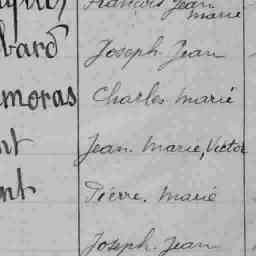 François Jean
marie
bard Joseph Jean
moras Charles marié
nt Jean. Marie, Victor
nt Pierre. Marié
Joseph. Jean